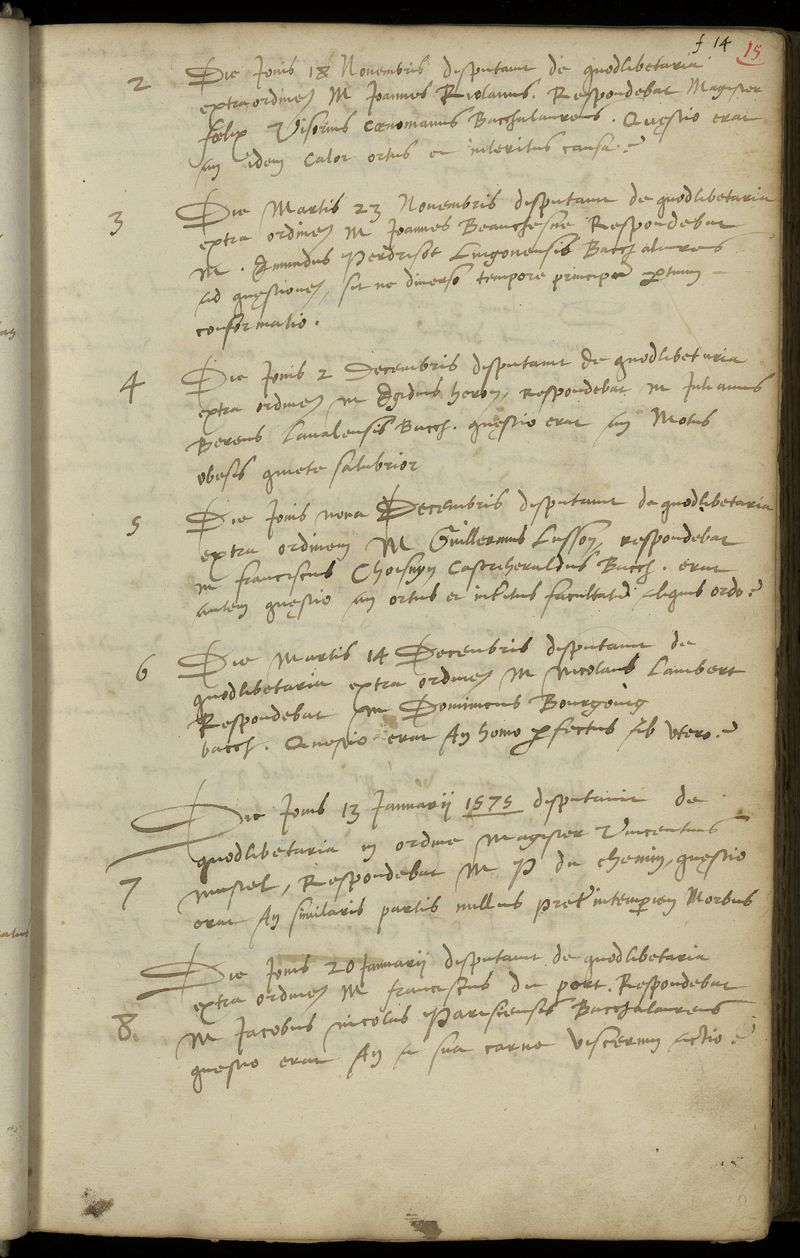 f 14 15
2 Die Jovis 18 Novembris disputavit de quodlibetaria
extra ordinem M Joannes Riolanus. Respondebat Magister
foelix Visorius coenomanus Bacchalaureus. Quęstio erat
an idem calor ortus et interitus causa?
3 Die Martis 23 Novembris disputavit de quodlibetaria
extra ordinem M Joannes Beauchesne Respondebat
M. Edmundus Perdrisot Lingonensis Bacchalaureus
ad quęstionem, sit ne diverso tempore principum partium
conformatio.
4 Die Jovis 2 Decembris disputavit de quodlibetaria
extra ordinem M Ægidius heron, respondebat M Julianus
Bereus Lavalensis Bacch. quęstio erat an Motus
obesis quiete salubrior
5 Die Jovis nona Decembris disputavit de quodlibetaria
extra ordinem M Guillermus Lusson, respondebat
M franciscus Choisnyn Castriheraldus Bacch. erat
autem quęstio an ortus et interitus facultatum aliquis ordo?
6 Die Martis 14 Decembris disputavit de
quodlibetaria extra ordinem M Nicolaus Lambert
Respondebat M Dominicus Bourgoing
bacch. Quęstio erat An homo perfectus sub utero?
Die Jovis 13 Januarij 1575 disputavit de
quodlibetaria in ordine Magister Vincentius
7 Mustel, Respondebat M P du chemin, quęstio
erat An similaris partis nullus pręter intemperiem Morbus
Die Jovis 20 Januarij disputavit de quodlibetaria
extra ordinem M franciscus du port. Respondebat
8. M Jacobus nicolus Parisiensis Bacchalaureus
quęstio erat An a sua carne viscerum actio?